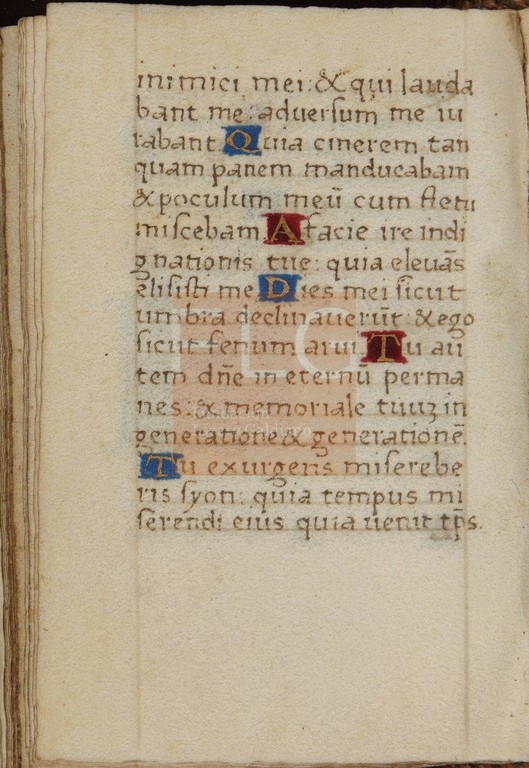 inimici mei: & qui lauda
bant me: aduersum me iu
rabant Quia cinerem tan
quam panem manducabam
& poculum meū cum fletu
miscebam A facie ire indi
gnationis tue: quia eleuās
elisisti me Dies mei sicut
umbra declinauerūt: & ego
sicut fenum arui. Tu au
tem dn̄e in eternū perma
nes: & memoriale tuuꝫ in
generatione & generationē.
Tu exurgens miserebe
ris syon: quia tempus mi
serendi eius quia uenit tp̄s.